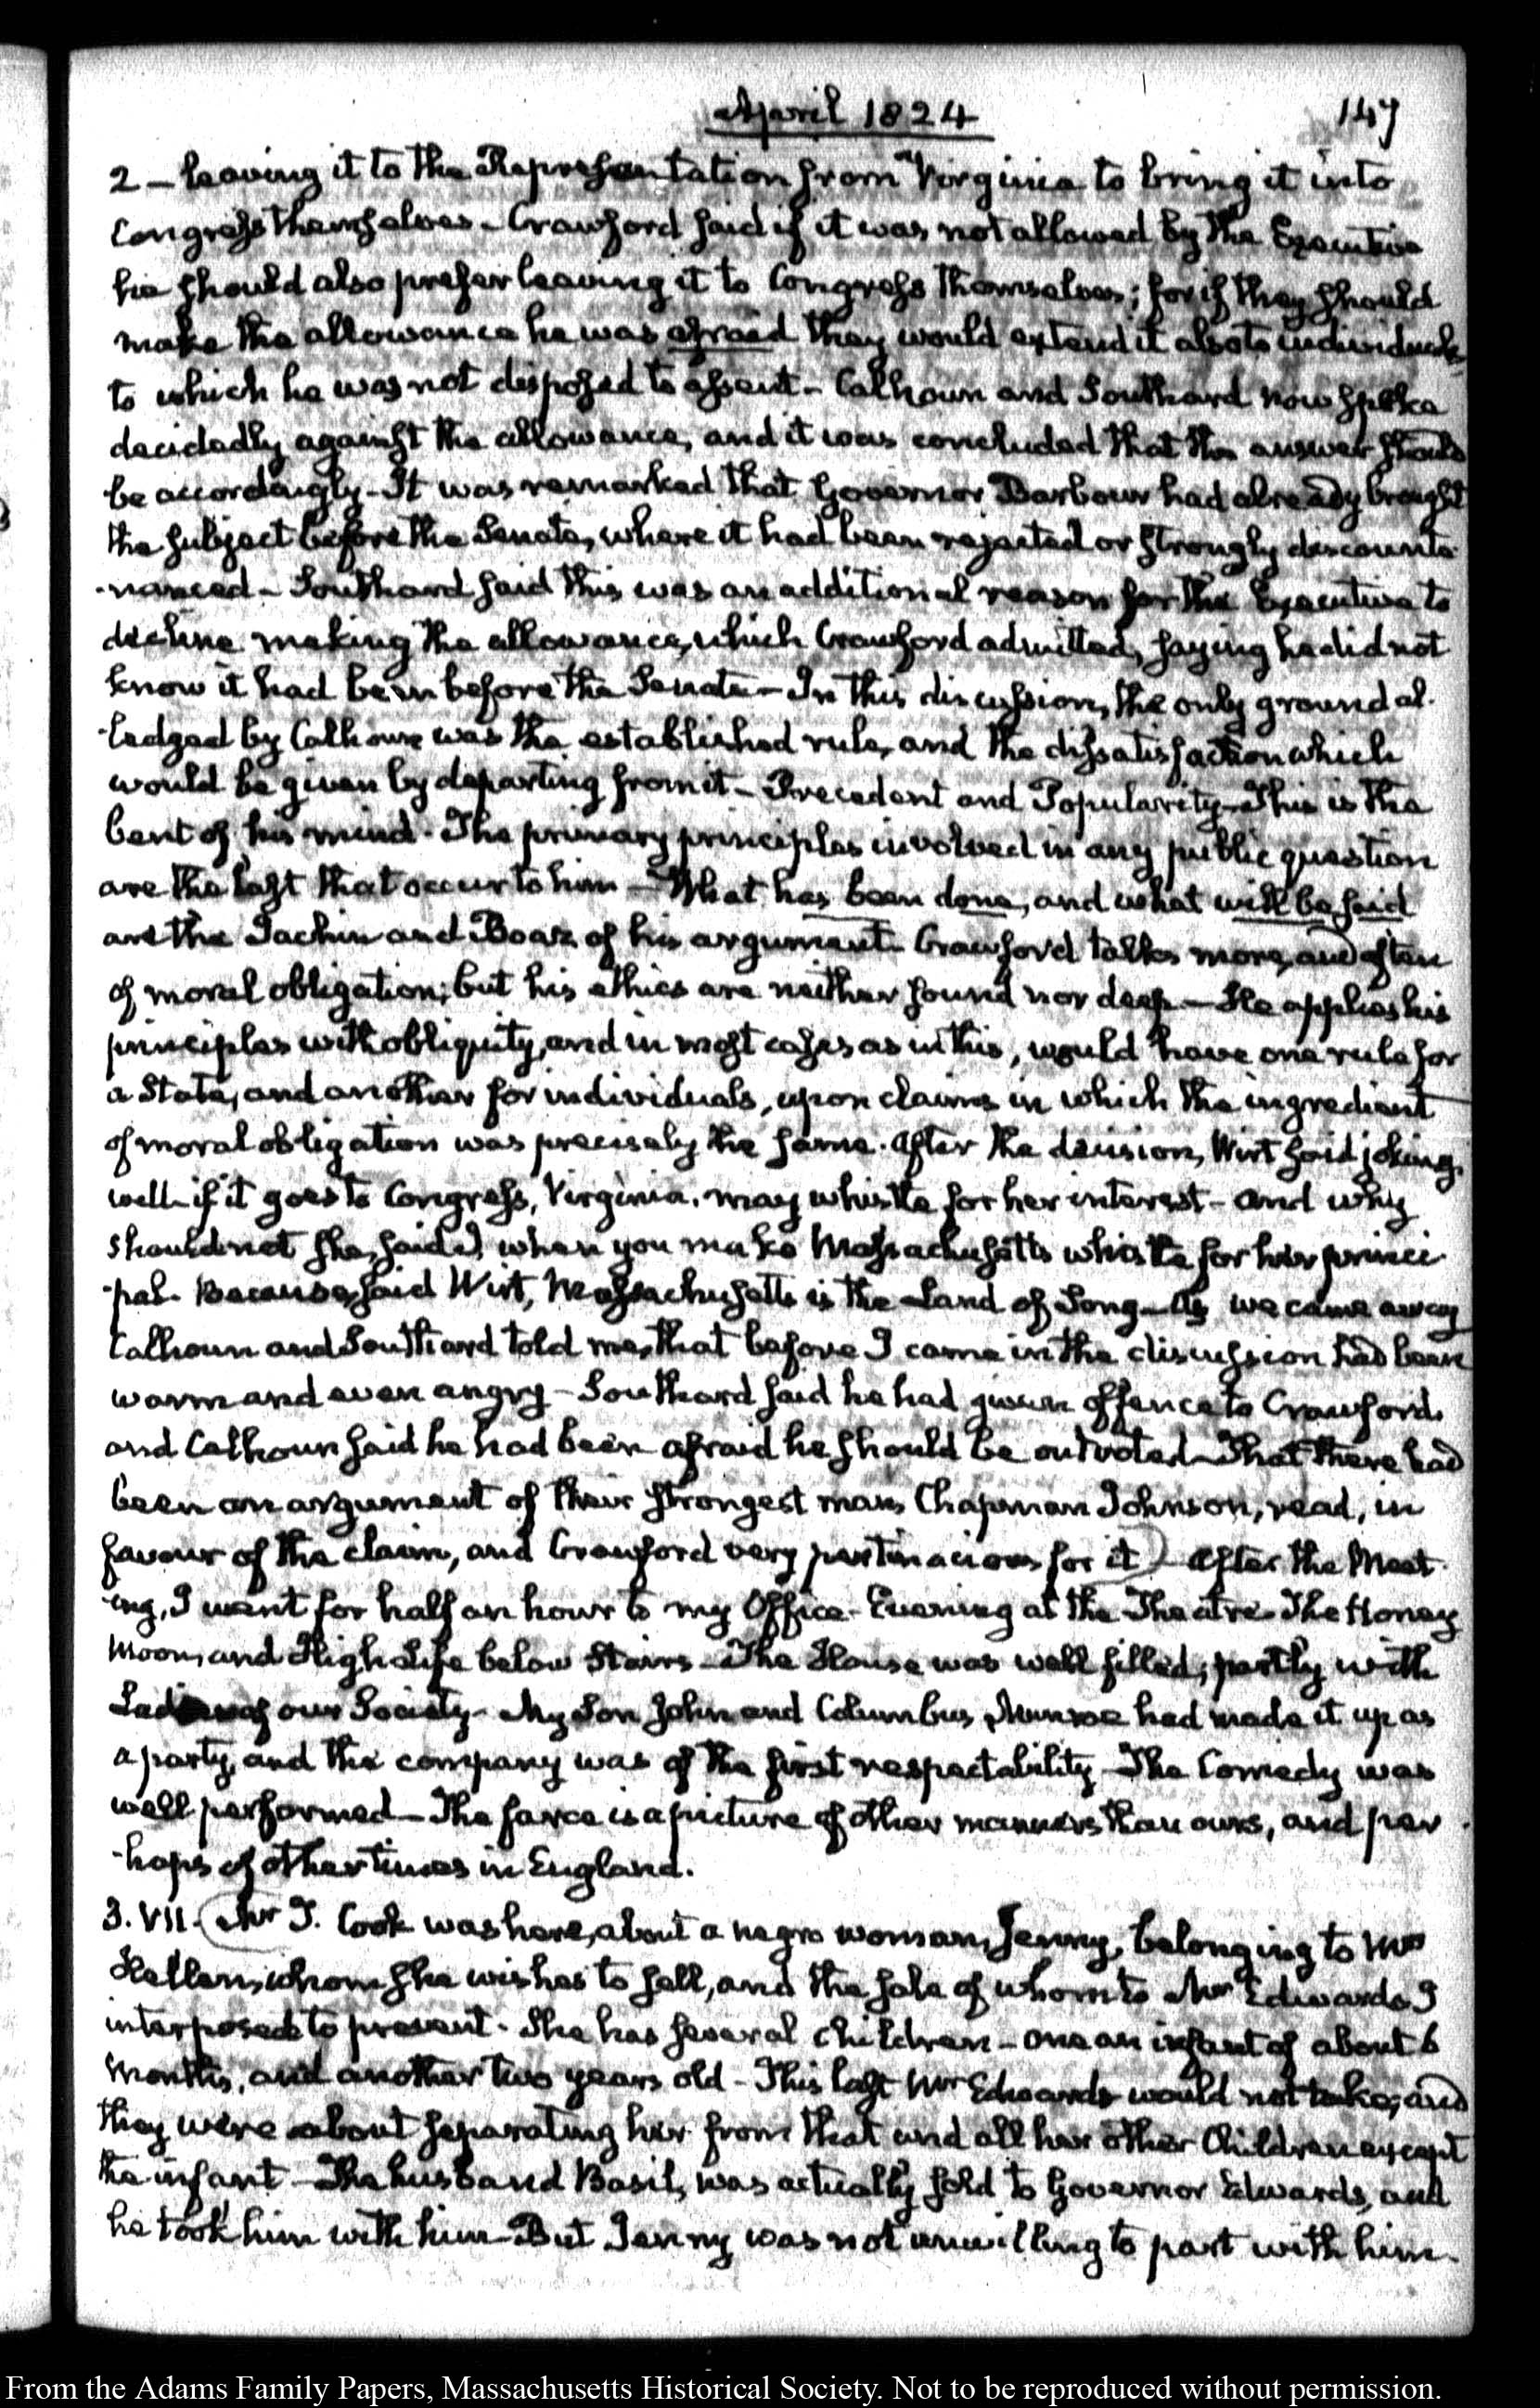 April 1824
147
2 — leaving it to the Representation from Virginia to bring it into
Congress themselves – Crawford said if it was not allowed by the Executive
he should also prefer leaving it to Congress themselves; for if they should
make the allowance he was afraid they would extend it also to individuals,
to which he was not disposed to assent – Calhoun and Southard now spoke
decidedly against the allowance, and it was concluded that the answer should
be accordingly – It was remarked that Governor Barbour had already brought
the subject before the Senate, where it had been rejected or strongly discounte-
-nanced – Southard said this was an additional reason for the Executive to
decline making the allowance, which Crawford admitted, saying he did not
know it had been before the Senate – In this discussion, the only ground al-
-ledged by Calhoun was the established rule, and the dissatisfaction which
would be given by departing from it – Precedent and Popularity – This is the
bent of his mind. The primary principles involved in any public question
are the last that occur to him – What has been done, and what will be said
are the Jachin and Boaz of his argument – Crawford talks more, and often
of moral obligation; but his ethics are neither sound nor deep – He applies his
principles with obliquity, and in most cases as in this, would have one rule for
a State, and another for individuals, upon claims in which the ingredient
of moral obligation was precisely the same. After the decision, Wirt said joking,
well – if it goes to Congress, Virginia may whistle for her interest – and why
should not she, said I, when you make Massachusetts whistle for her princi-
-pal. Because, said Wirt, Massachusetts is the Land of Song – As we came away
Calhoun and Southard told me, that before I came in the discussion had been
warm and even angry – Southard said he had given offence to Crawford,
and Calhoun said he had been afraid he should be outvoted – That there had
been an argument of their strongest man, Chapman Johnson, read, in
favour of the claim, and Crawford very pertinacious for it) – After the Meet-
-ing, I went for half an hour to my Office – Evening at the Theatre – The Honey
Moon, and High Life below Stairs – The House was well filled; partly with
Ladies of our Society – My Son John and Columbus Munroe had made it up as
a party, and the company was of the first respectability – The Comedy was
well performed – The farce is a picture of other manners than ours, and per-
-haps of other times in England.
3. VII. (Mr J. Cook was here, about a negro woman, Jenny, belonging to Mrs
Hellen, whom she wishes to sell, and the sale of whom to Mr Edwards I
interposed to prevent. She has several children – one an infant of about 6
months, and another two years old – This last Mr Edwards would not take; and
they were about separating her from that and all her other Children except
the infant – The husband Basil, was actually sold to Governor Edwards, and
he took him with him – But Jenny was not unwilling to part with him.
From the Adams Family Papers, Massachusetts Historical Society. Not to be reproduced without permission.